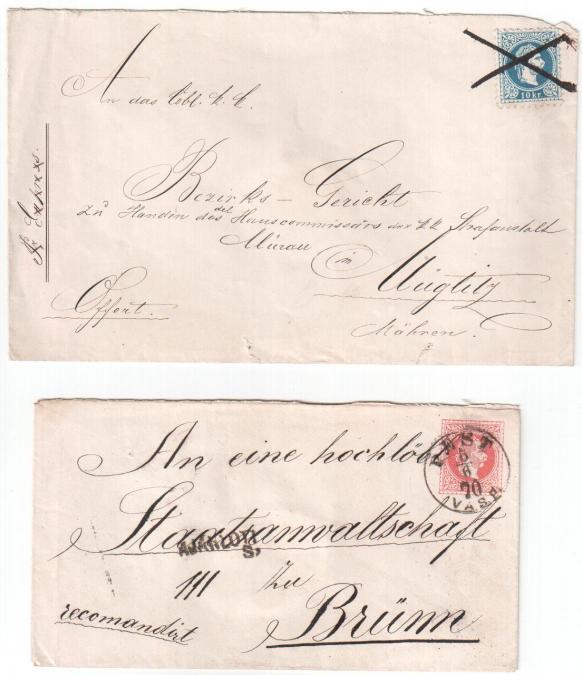 An das löbl. k. k.
10 kr
Bezirks - Gericht
zu Handen des Hauscommissärs der kk Strafanstalt
Mürau
in
Müglitz
Mähren.
Offert.
Pr Express.
An eine hochlöb
Staatsanwaltschaft
zu
Brünn
recomandirt
AJÁNLOTT
S.
PEST
5
6
70